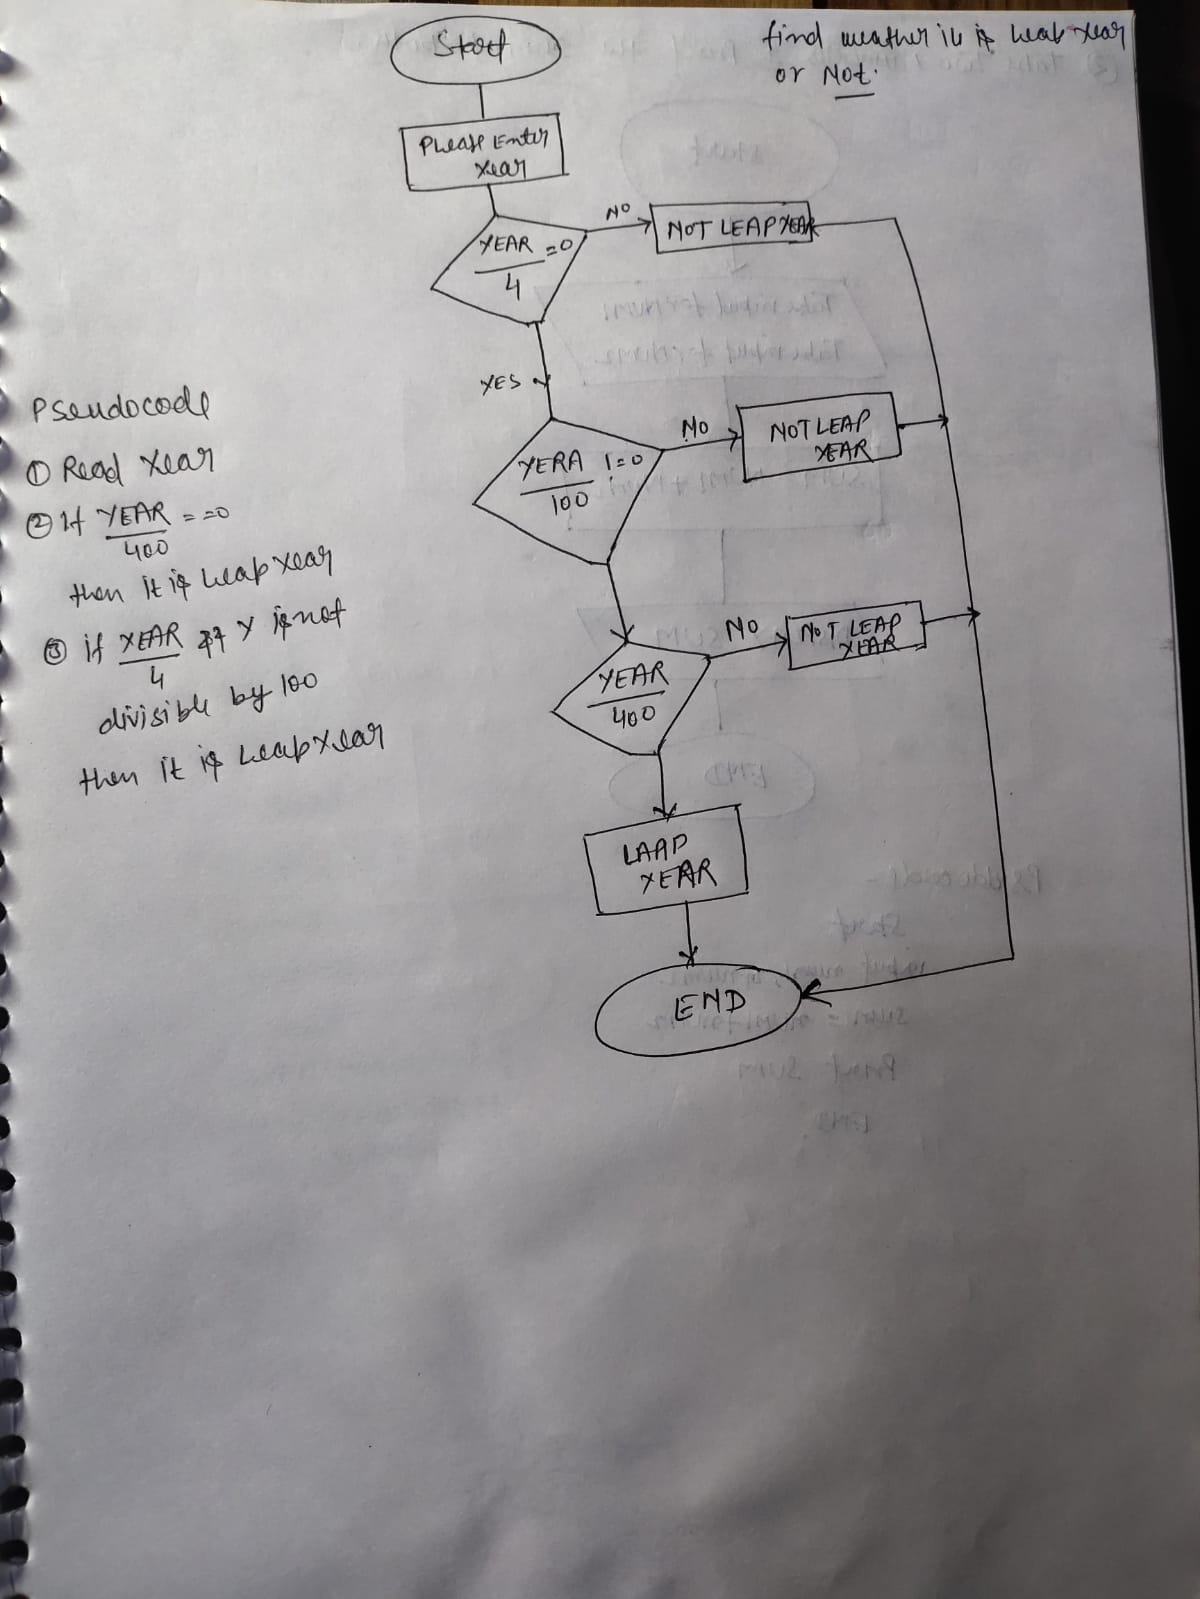 find weather it is Leap Year
or Not.
Start
Please Enter
Year
YEAR =0
4
NO
NOT LEAP YEAR
YES
YERA !=0
100
NO
NOT LEAP
YEAR
YEAR
400
NO
NOT LEAP
YEAR
LAAP
YEAR
END
Pseudocode
① Read Year
② If YEAR ==0
400
then it is Leap Year
③ if YEAR Y is not
4
divisible by 100
then it is Leap Year